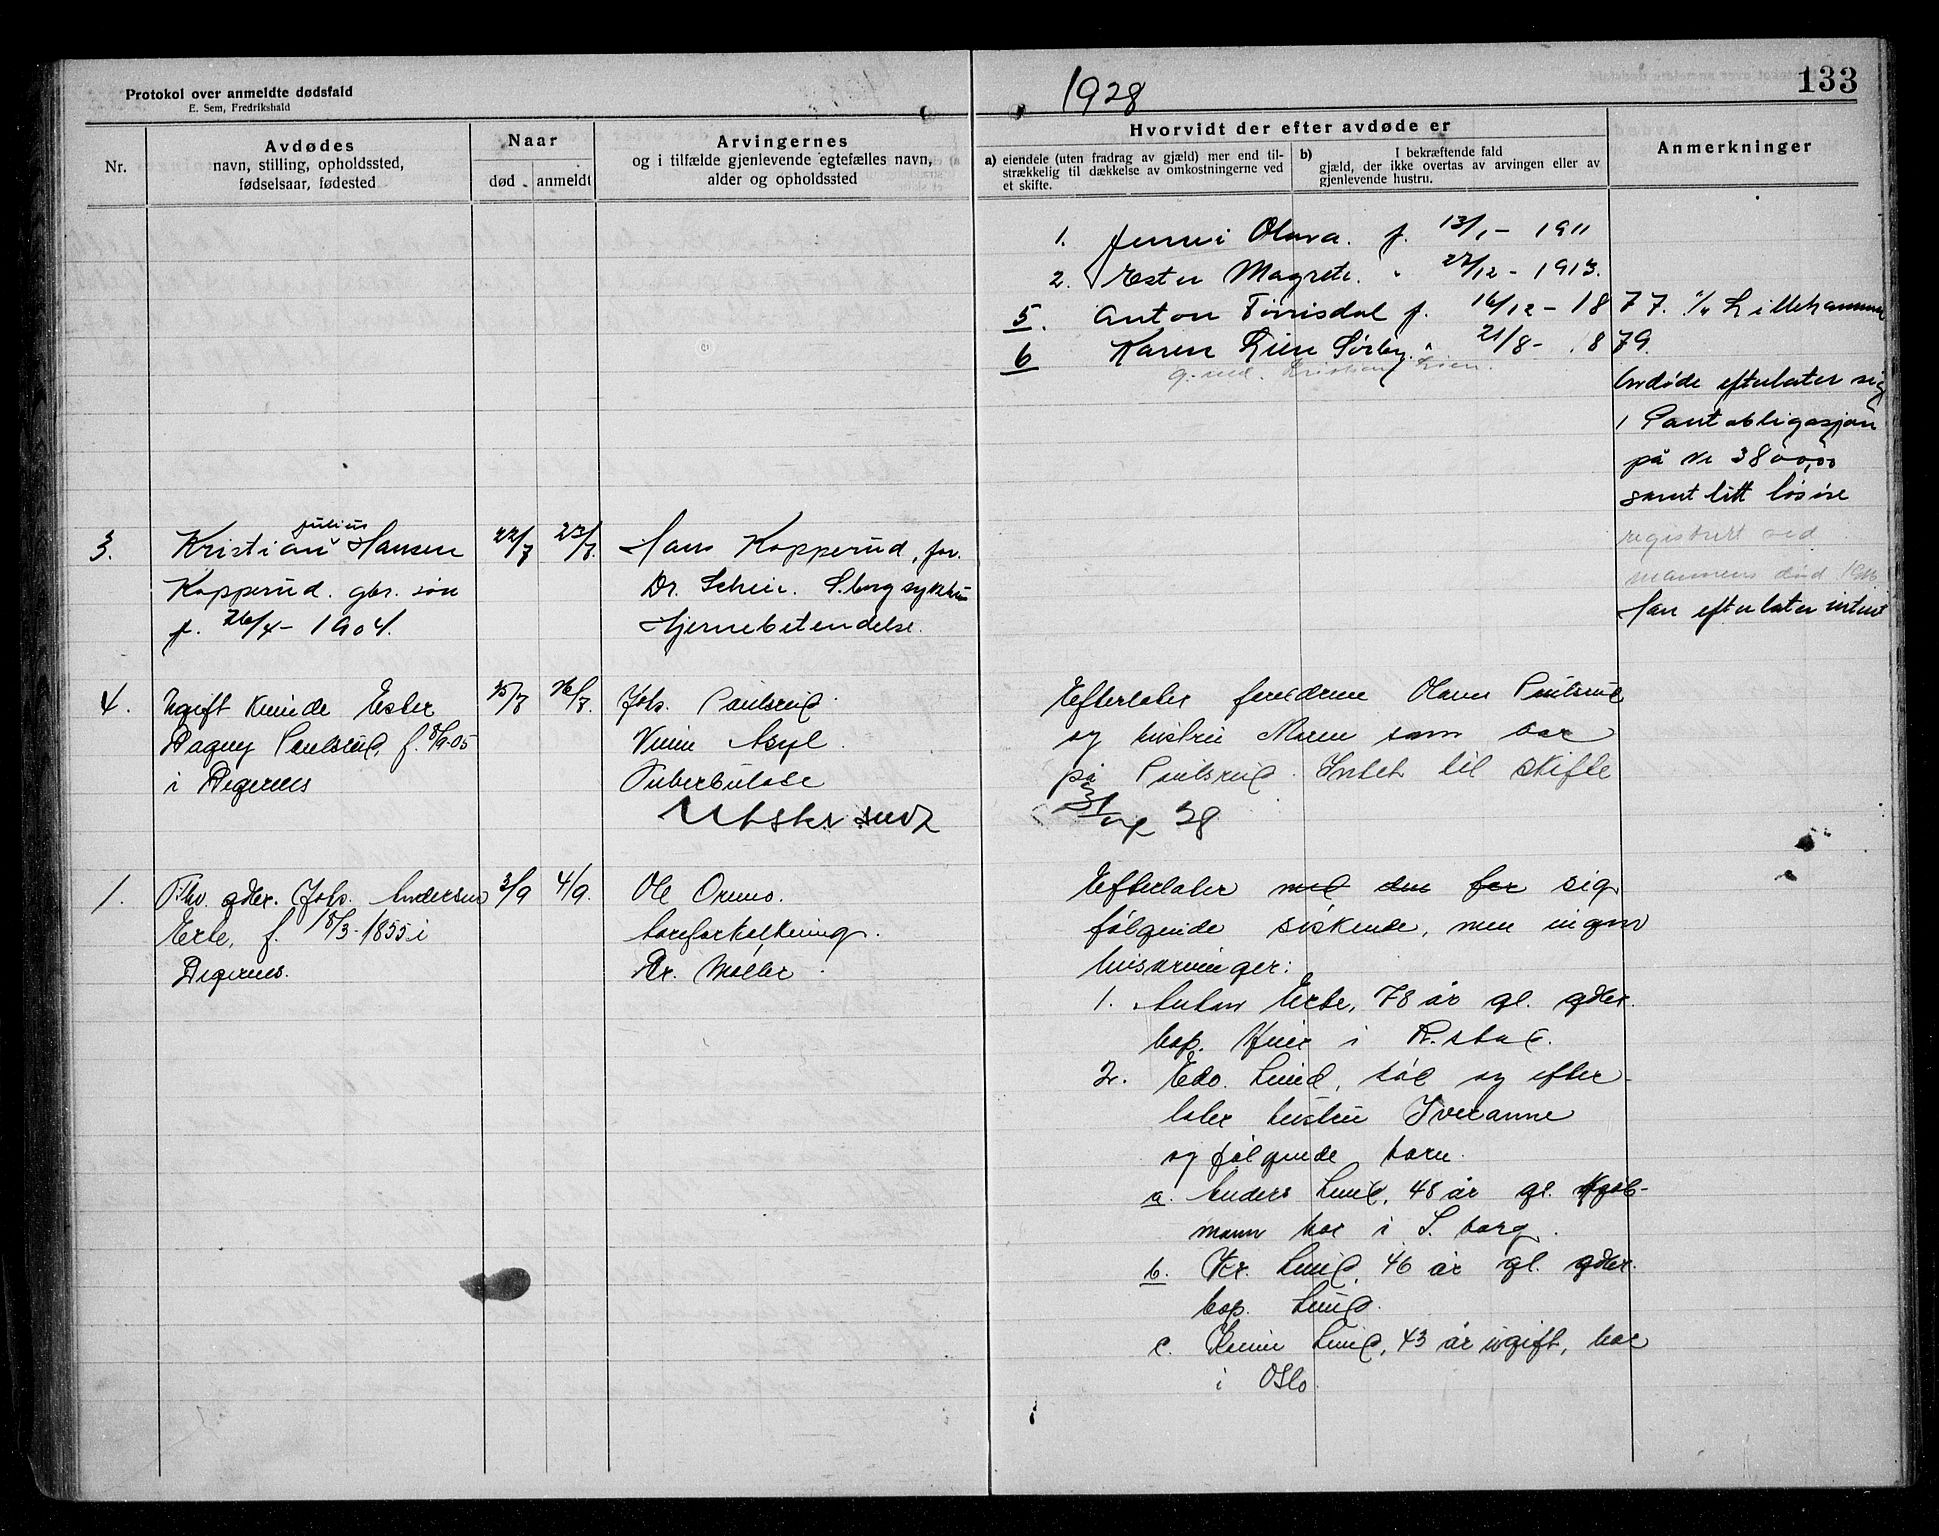 Protokol over anmeldte dødsfald
E. Sem, Fredrikshald
1928
133
Nr.
Avdødes
navn, stilling, opholdssted,
fødselsaar, fødested
Naar
død
anmeldt
Arvingernes
og i tilfælde gjenlevende egtefælles navn,
alder og opholdssted
Hvorvidt der efter avdøde er
a) eiendele (uten fradrag av gjæld) mer end til-
strækkelig til dækkelse av omkostningerne ved
et skifte.
b) I bekræftende fald
gjæld, der ikke overtas av arvingen eller av
gjenlevende hustru.
Anmerkninger
1. Jenni Olava. f. 13/1 - 1911
2. Ester Magrete. " 27/12 - 1913.
5. Anton Tørrisdal f. 16/12 - 1877. Lillehammer
6 Karen Lien Sørby. " 21/8 - 1879.
g. med. Kristian Lien.
Avdøde efterlater sig
1 Pantobligasjon
på kr 3800,00
samt litt løsøre
registrert ved
mannens død
3. Kristian Julius Hansen
Kopperud. gbr. søn
f. 26/4 - 1904.
22/7 23/7.
Hans Kopperud, far.
Dr. Scheie. S.borg sykehus
Hjernebetendelse.
Han efterlater intent
4. Ugift kvinde Ester
Dagny Paulsrud, f. 8/9-05
i Degernes
25/7 26/7.
Joh. Paulsrud
Viein Asyl.
Tuberkulose
Utskr. send
Efterlater foreldrene Olaus Paulsrud
og hustru Maren som bor
på Paulsrud. Intet til skifte
31/7 28
1. Fhv. gdbr. Johs. Andersen
Erte, f. 18/3-1855 i
Degernes.
3/9 4/9.
Ole Ornes.
Aareforkalkning.
Dr. Møller.
Efterlater med den for sig
følgende søskende, men ingen
livsarvinger:
1. Anton Erte, 78 år gl. gdbr.
bop. i R.stad.
2. Edv. Lund, død og efter-
later hustru Iveranne
og følgende barn.
a. Anders Lund, 48 år gl. Kjøb-
mann bor i S.borg.
b. Kr. Lund, 46 år gl. gdbr.
bop. Lund.
c. Lund, 43 år ugift, bor
i Oslo.